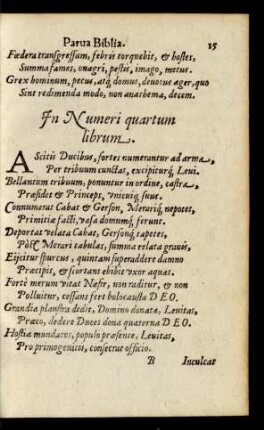 Parua Biblia. 15
Fœdera transgressum, febris torquebit, & hostes,
Summa fames, onagri, pestis, imago, metus.
Grex hominum, pecus, atq; domus, deuotus ager, quo
Sint redimenda modo, non anathema, decem.
In Numeri quartum
librum.
AScitis Ducibus, fortes numerantur ad arma,
Per tribuum cunctas, excipiturq; Leui.
Bellantum tribuum, ponuntur in ordine, castra,
Præsidet & Princeps, vnicuiq; suus.
Connumerat Cahat & Gerson, Merariq; nepotes,
Primitiæ facti, vasa domumq; ferunt.
Deportat velata Cahat, Gersonq; tapetes,
Post Merari tabulas, summa relata grauis.
Eijcitur spurcus, quintam superaddere damno
Præcipis, & scortans ebibit vxor aquas.
Fortè merum vitat Nasir, non raditur, & non
Polluitur, cessans fert holocausta DEO.
Grandia plaustra dedit, Domino donata, Leuitas,
Præco, dedere Duces dona quaterna DEO.
Hostia mundatos, populo præsente, Leuitas,
Pro primogenitis, consecrat officio.
B Inculcat